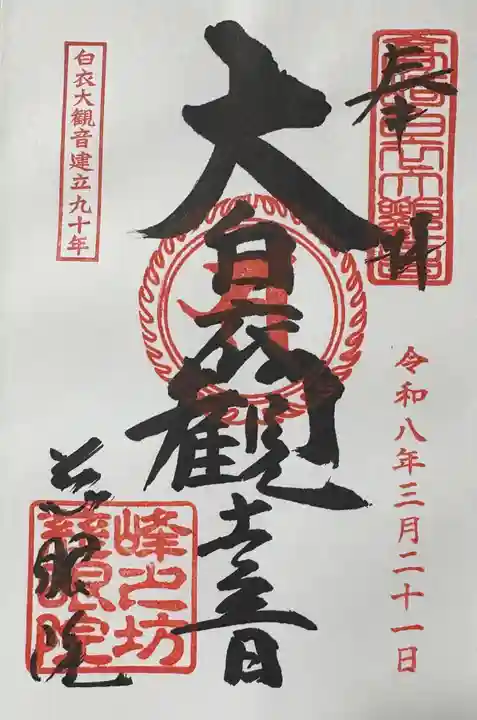 奉拝
高崎白衣大観音
令和八年三月二十一日
大白衣観音
白衣大観音建立九十年
慈眼院
峰之坊
慈眼院